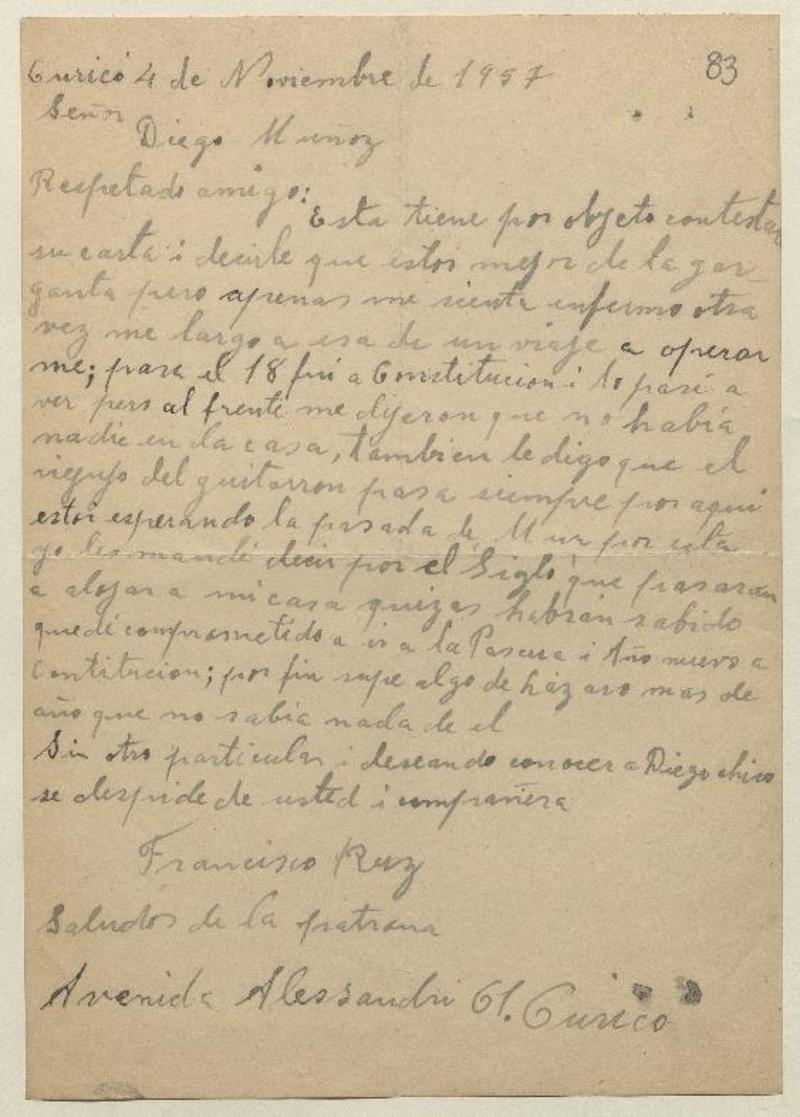 83
Curicó 4 de Noviembre de 1957
Señor
Diego Muñoz
Respetado amigo:
Esta tiene por objeto contestar
su carta i decirle que estoi mejor de la gar
ganta pero apenas me sienta enfermo otra
vez me largo a esa de un viaje a operar
me; para el 18 fui a Constitucion i lo pasé a
ver pero al frente me dijeron que no había
nadie en la casa, tambien le digo que el
viejujo del guitarron pasa siempre por aqui
estoi esperando la pasada de por esta
yo les mandé decir por el Siglo que pasaran
a alojar a mi casa quizas habrán sabido
quedé comprometido a ir a la Pascua i Año nuevo a
Contitucion; por fin supe algo de Lázaro mas de
año que no sabia nada de el
Sin otro particular i deseando conocer a Diego chico
se despide de usted i compañera
Francisco Ruz
Saludos de la patrona
Avenida Alessandri 61. Curicó